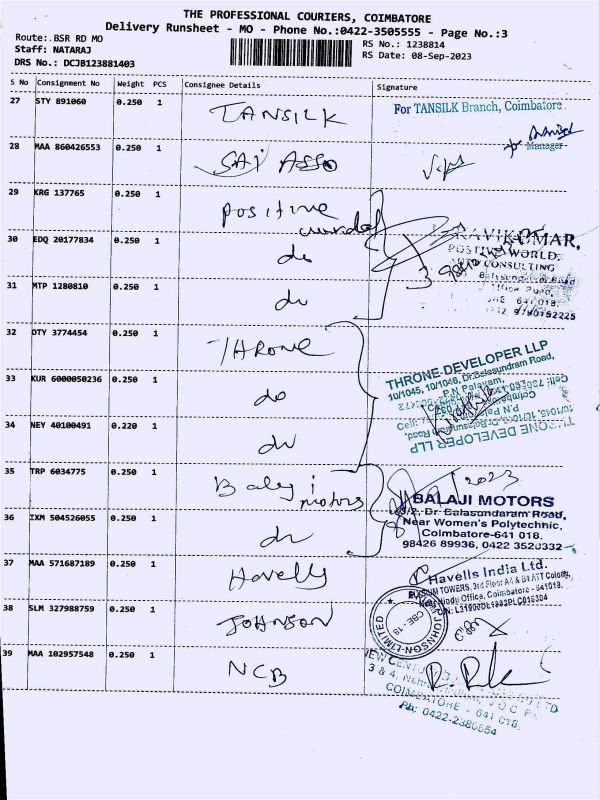 THE PROFESSIONAL COURIERS, COIMBATORE
Delivery Runsheet - MO - Phone No.:0422-3505555 - Page No.:3
Route:.BSR RD MO
Staff: NATARAJ
DRS No.: DCJB123881403
RS No.: 1238814
RS Date: 08-Sep-2023
S No Consignment No Weight PCS Consignee Details Signature
27 STY 891060 0.250 1 TANSILK For TANSILK Branch, Coimbatore
Manager
28 MAA 860426553 0.250 1 SAI ASSO
29 KRG 137765 0.250 1 positive
30 EDQ 20177834 0.250 1 do
RAVIKUMAR,
POSITIVE WORLD,
CONSULTING
31 MTP 1280810 0.250 1 do
641 018.
9790752225
32 DTY 3774454 0.250 1 THRONE
THRONE DEVELOPER LLP
10/1045, 10/1046, Dr.Balasundram Road,
P.N Palayam,
33 KUR 6000050236 0.250 1 do
34 NEY 40100491 0.220 1 do
THRONE DEVELOPER LLP
35 TRP 6034775 0.250 1 Balaji
motors
2023
BALAJI MOTORS
Dr. Balasundaram Road,
Near Women's Polytechnic,
Coimbatore-641 018.
98426 89936, 0422 3520332
36 IXM 504526055 0.250 1 do
37 MAA 571687189 0.250 1 Havells
Havells India Ltd.
TOWERS, 3rd Floor A4 & B4 ATT Colony,
Hindu Office, Coimbatore - 641018.
38 SLM 327988759 0.250 1 JOHNSON
JOHNSON-LIMITED
CBE-18
39 MAA 102957548 0.250 1 NCB
COIMBATORE - 641 018.
Ph: 0422-2380554